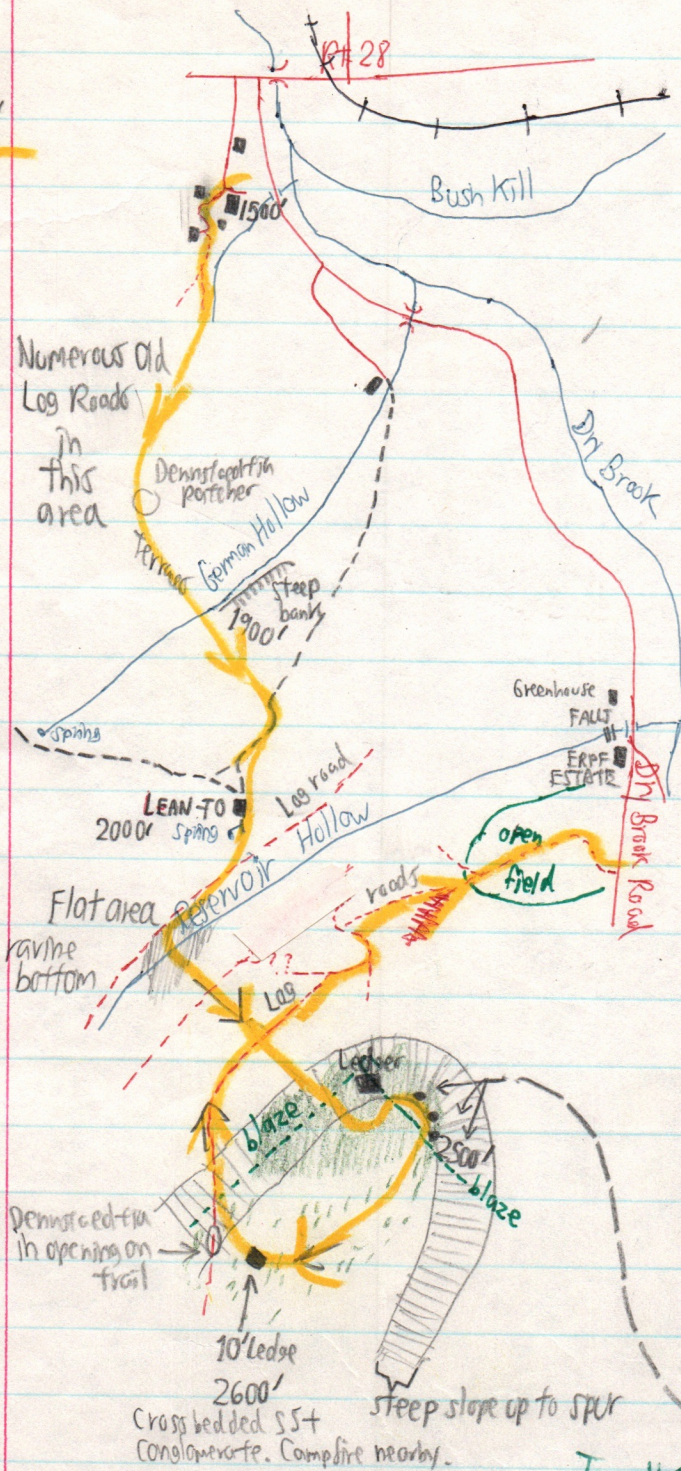 Rt 28
Bush Kill
1500'
Numerous Old
Log Roads
in
this
area
Dennstaedtia
patches
Dry Brook
German Hollow
terraces
steep
bank
1900'
spring
Greenhouse
FALLS
ERPF
ESTATE
Dry Brook Road
LEAN-TO
2000'
spring
Log road
Reservoir Hollow
open
field
roads
Flat area
ravine
bottom
??
Log
Ledges
blaze
2500'
blaze
Dennstaedtia
in opening on
trail
10' Ledge
2600'
Crossbedded SS +
Conglomerate. Campfire nearby.
steep slope up to spur